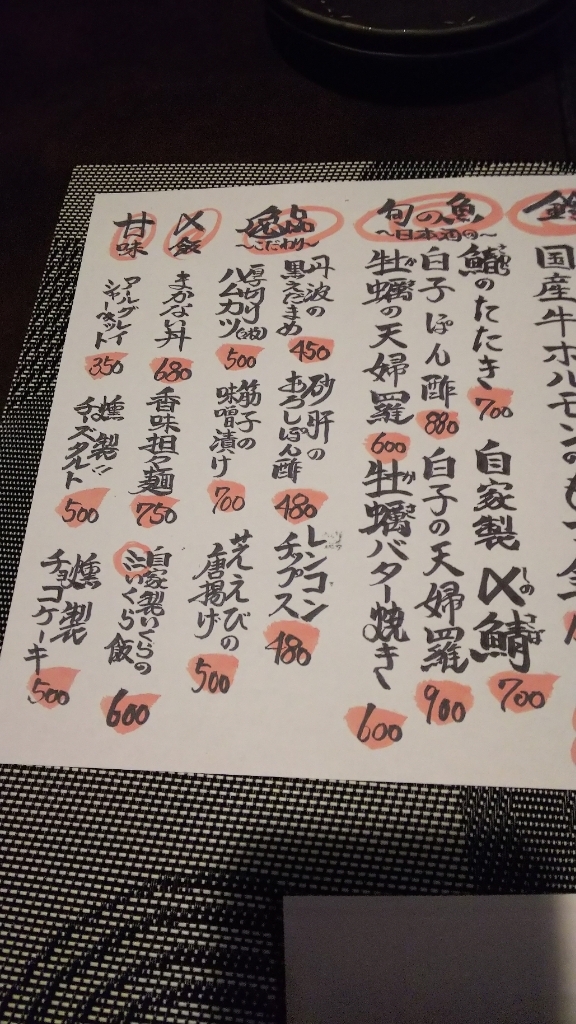 国産牛ホルモンのもつ
旬の魚
～日本酒の～
鰤のたたき
700
自家製〆鯖
しめさば
700
白子ぽん酢
880
白子の天婦羅
900
牡蠣の天婦羅
か
600
牡蠣バター焼き
か
600
逸品
～こだわり～
丹波の
黒えだまめ
450
砂肝の
おろしぽん酢
480
レンコン
チップス
480
厚切り
ハムカツ
500
筋子の
味噌漬け
700
芝えびの
唐揚げ
500
〆飯
まかない丼
680
香味担々麺
750
自家製いくらの
いくら飯
600
甘味
アールグレイ
シャーベット
350
燻製
チーズタルト
500
燻製
チョコケーキ
500